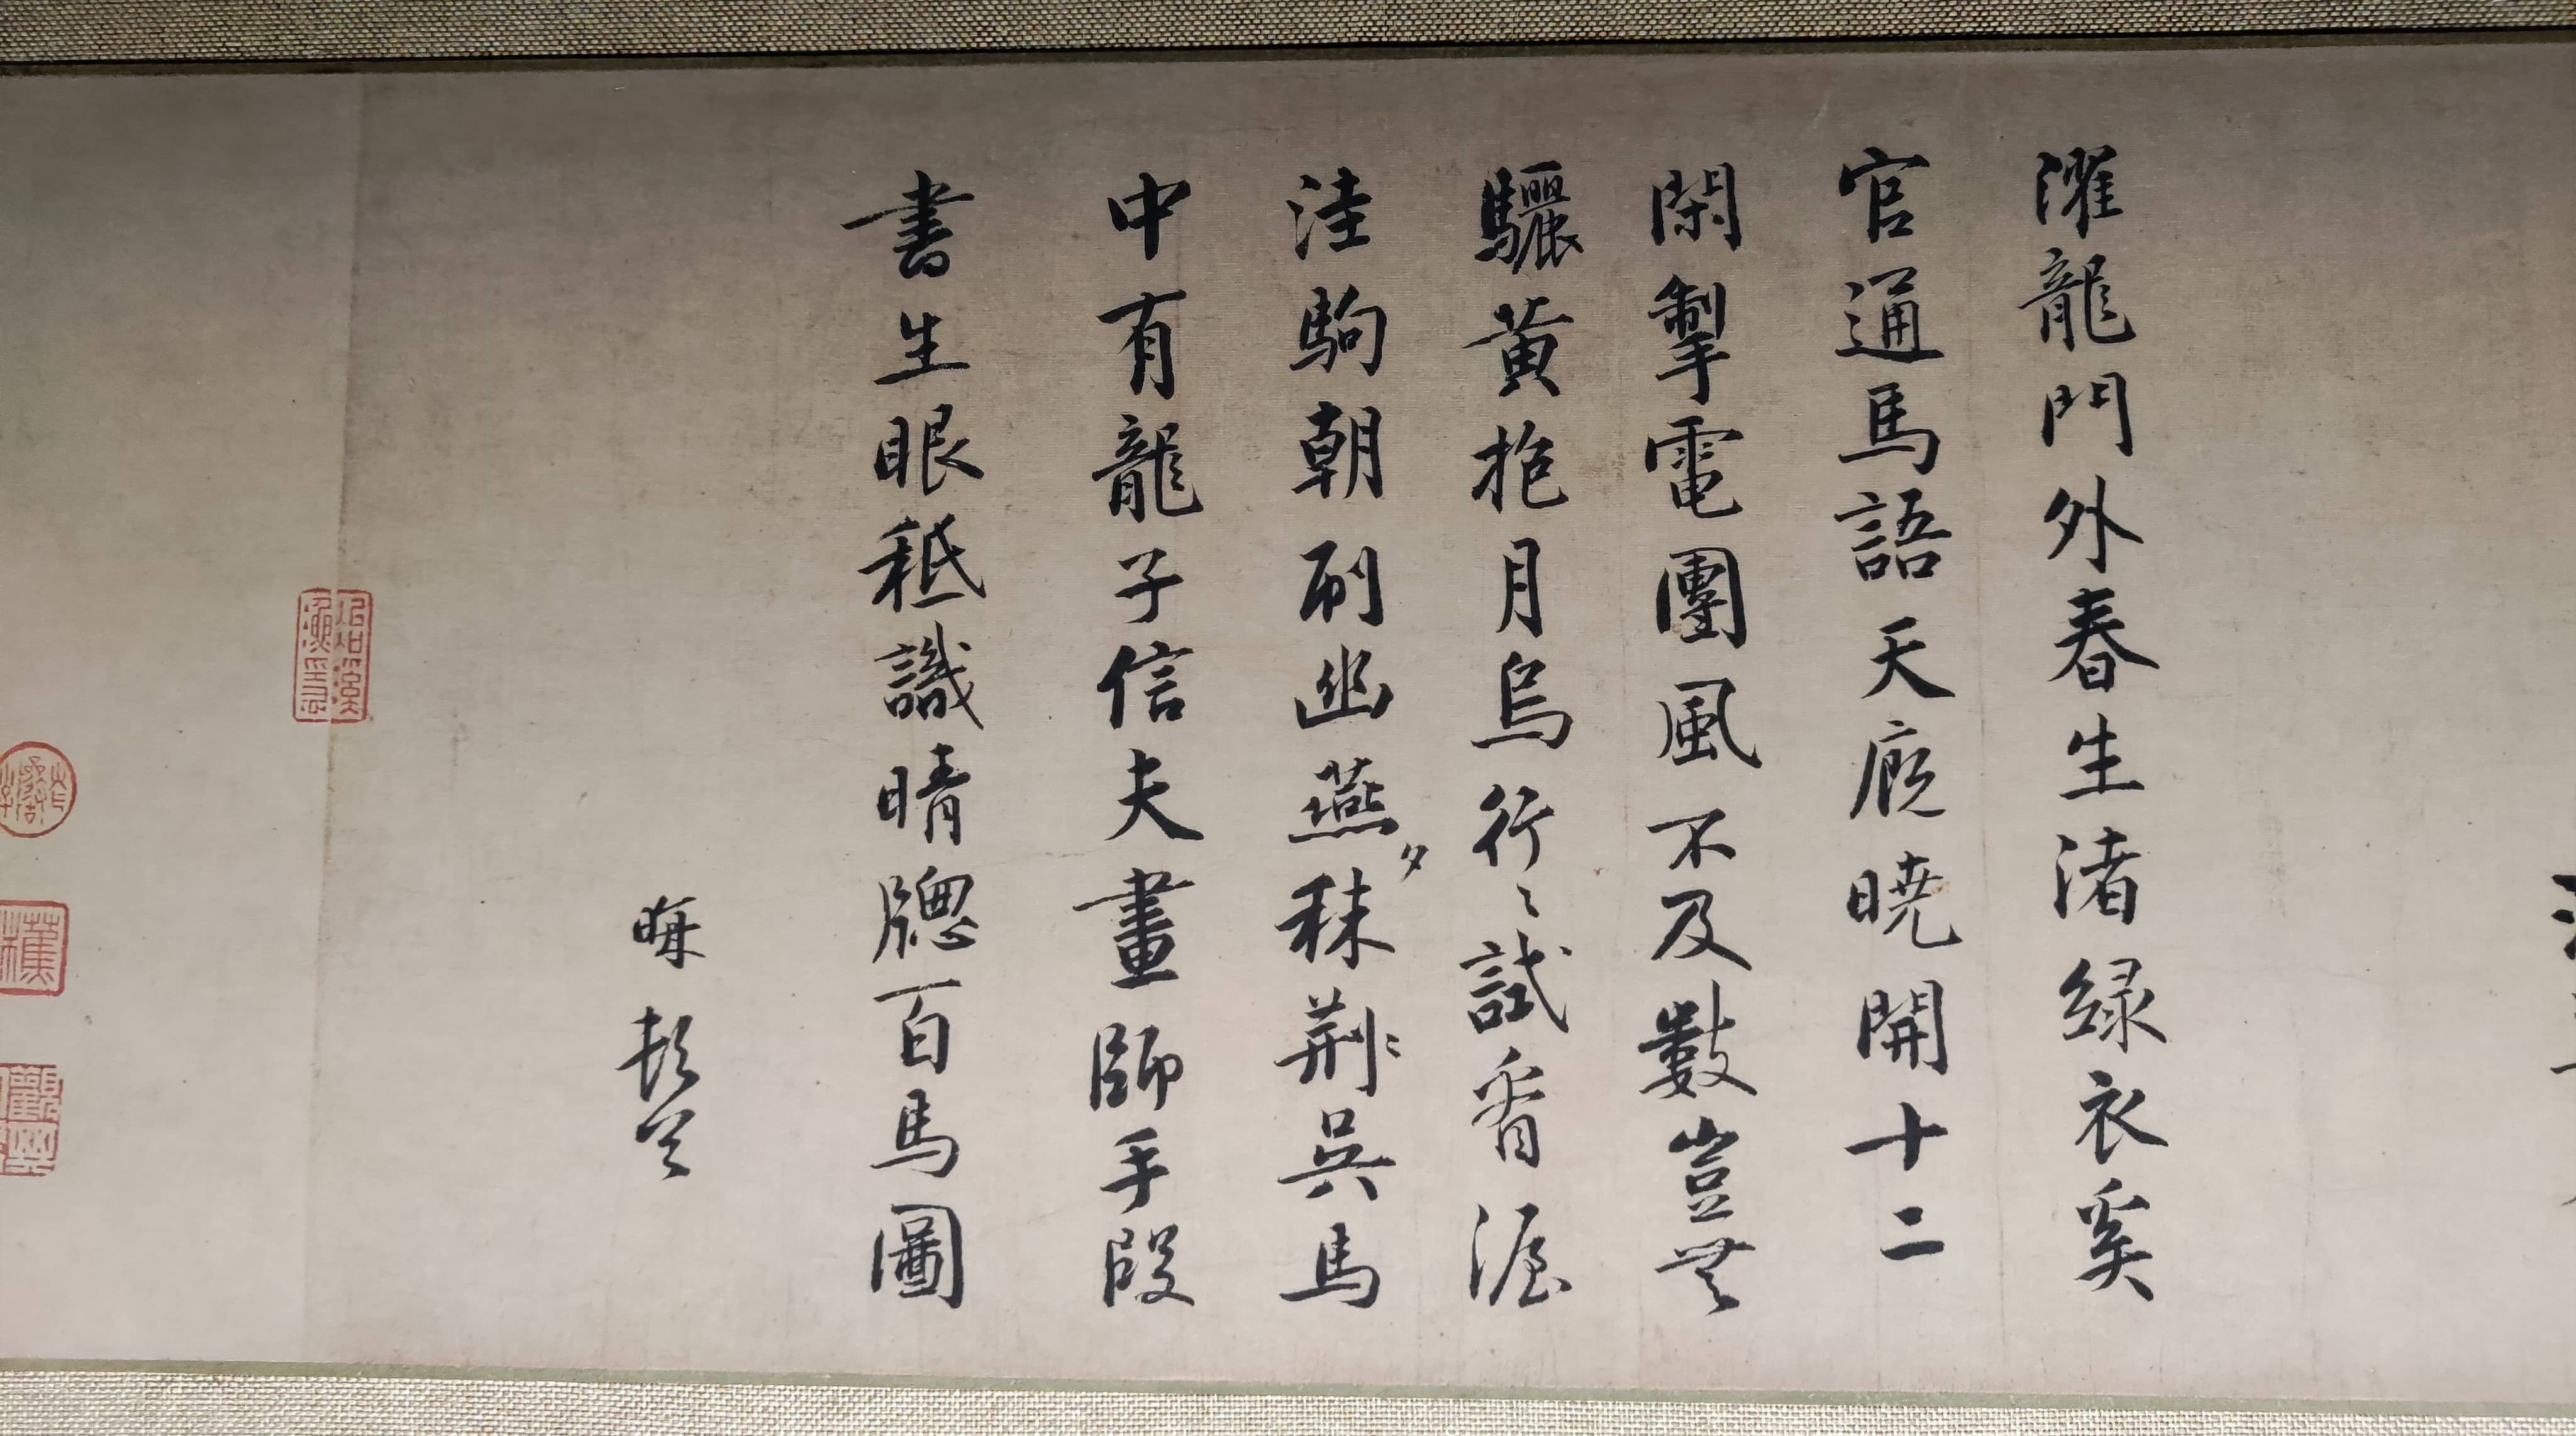 濯龍門外春生渚緑衣奚
官通馬語天廄曉開十二
閑掣電團風不及數豈無
驪黃抱月烏行〻試看渥
洼駒朝刷幽燕夕秣荆〻吳馬
中有龍子信夫畫師手段
書生眼秪識晴牕百馬圖